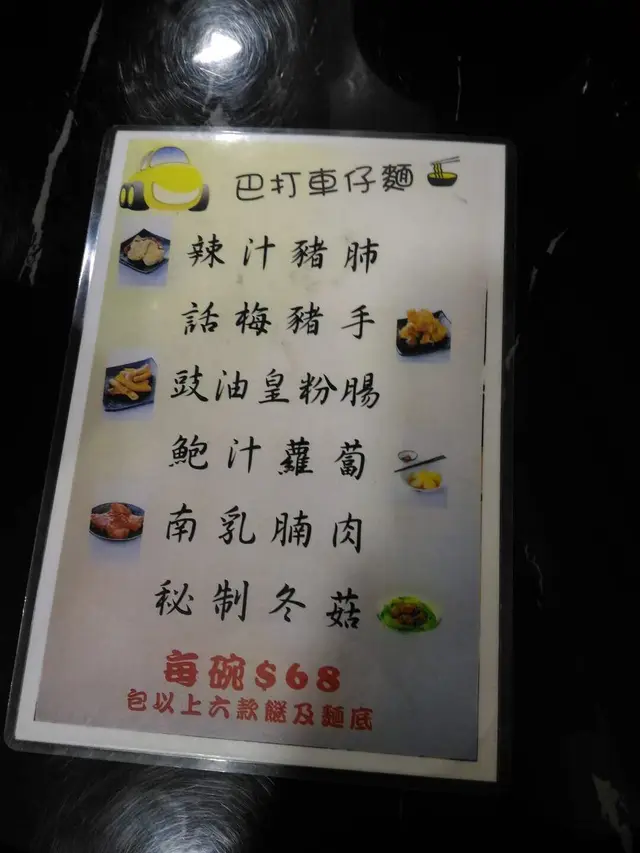 巴打車仔麵
辣汁豬肺
話梅豬手
豉油皇粉腸
鮑汁蘿蔔
南乳腩肉
秘制冬菇
每碗$68
包以上六款餸及麵底